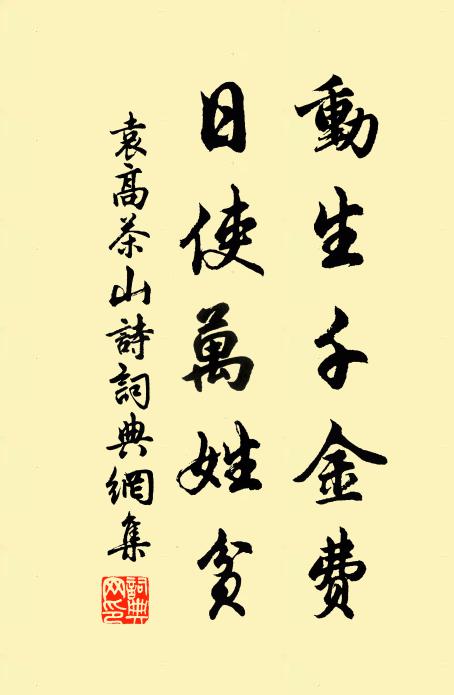 動生千金費
日使萬姓貧
袁高茶山詩詞典網集
詞典網印